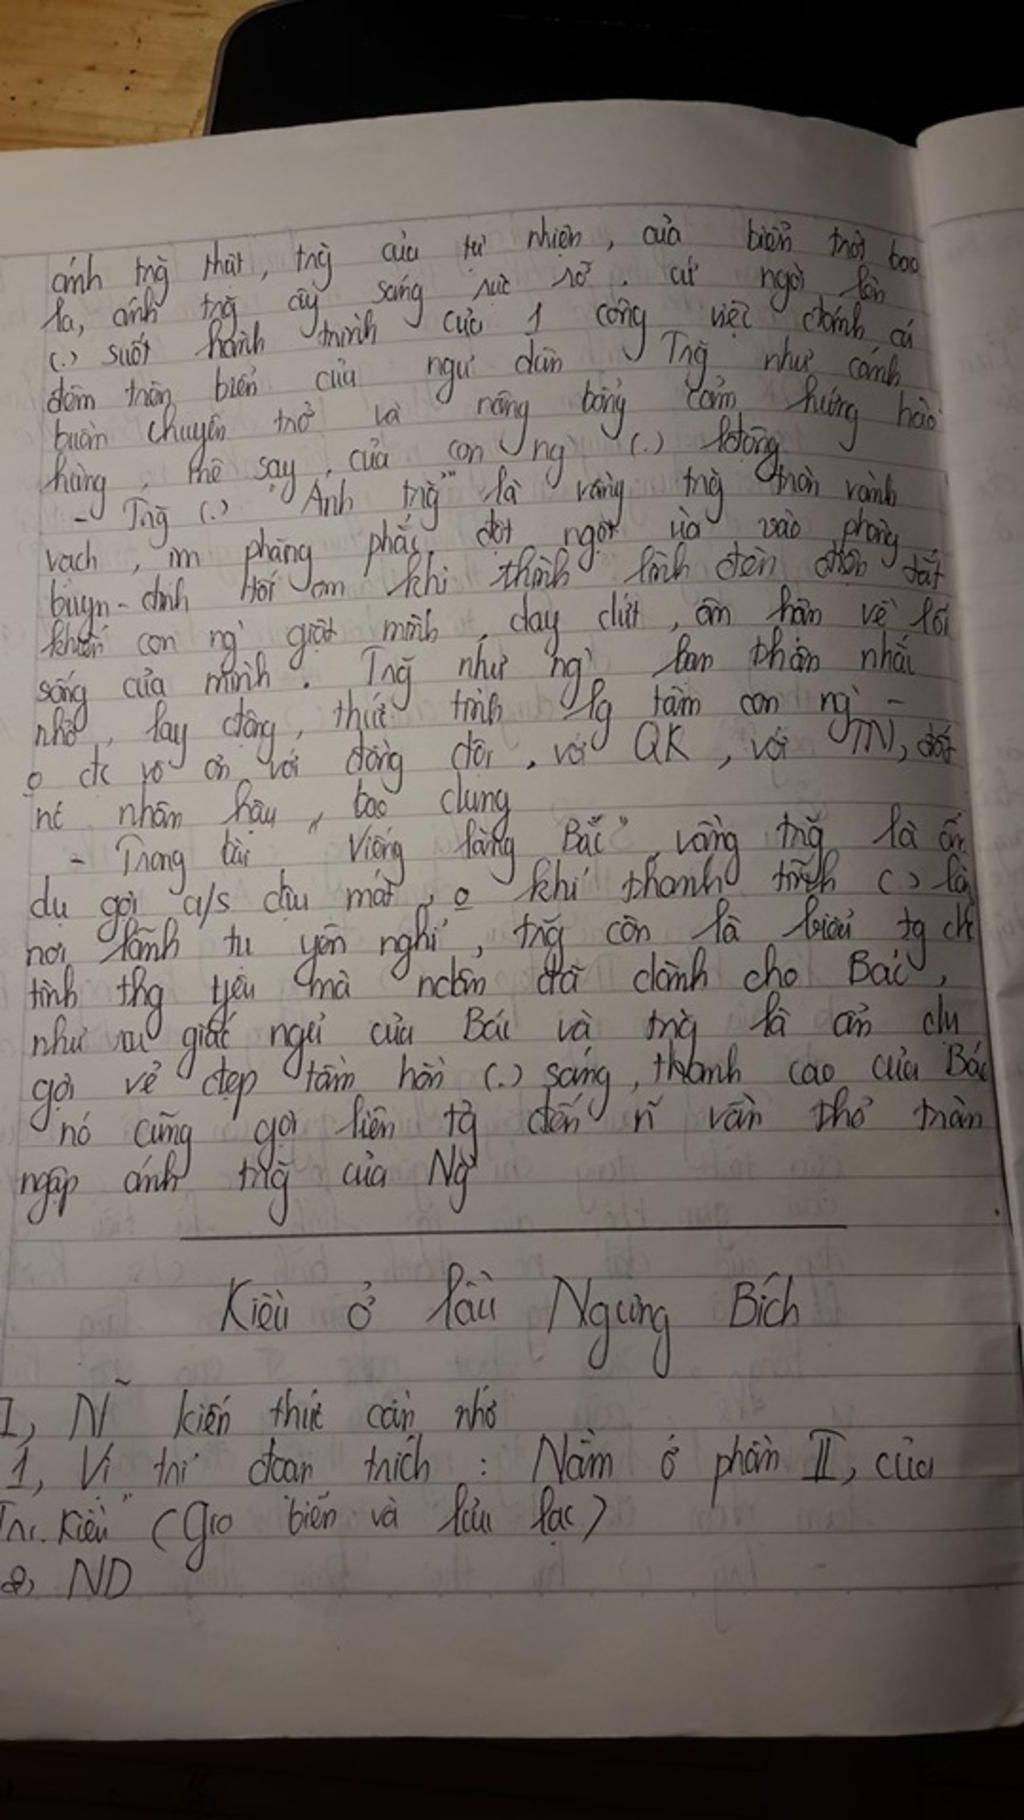 ánh trg thật, trg của tự nhiên, của biển trời bao
la, ánh trg ấy sáng rực rỡ. cứ ngời lên
(.) suốt hành trình của 1 công việc đánh cá
đêm trên biển của ngư dân Trg như cánh
buồm chuyên trở và nâng bổng cảm hứng hào
hùng, mê say, của con ng (.) lđộng
- Trg (.) "Ánh trg" là vầng trg tròn vành
vạch, im phăng phắc, đột ngột ùa vào phòng
buyn-đinh tối om khi thình lình đèn điện tắt
khiến con ng` giật mình, day dứt, ân hận về lối
sống của mình. Trg như ng` bạn thân nhắc
nhở, lay động, thức tỉnh lg tâm con ng` -
o đc vô ơn với đồng đội, với QK, với TN, đất
nc nhân hậu, bao dung
- Trong bài "Viếng lăng Bác", vầng trg là ẩn
dụ gợi a/s dịu mát, o khí thanh tĩnh (.) lăng
nơi lãnh tụ yên nghỉ, trg còn là biểu tg cho
tình thg yêu mà ndân đã dành cho Bác,
như ru giấc ngủ của Bác và trg là ẩn dụ
gợi vẻ đẹp tâm hồn (.) sáng, thanh cao của Bác
nó cũng gợi liên tg đến n~ vần thơ tràn
ngập ánh trg của Ng`
Kiều ở lầu Ngưng Bích
I, N~ kiến thức cần nhớ
1, Vị trí đoạn trích : Nằm ở phần II, của
Tr. Kiều" (Gia biến và lưu lạc)
2, ND